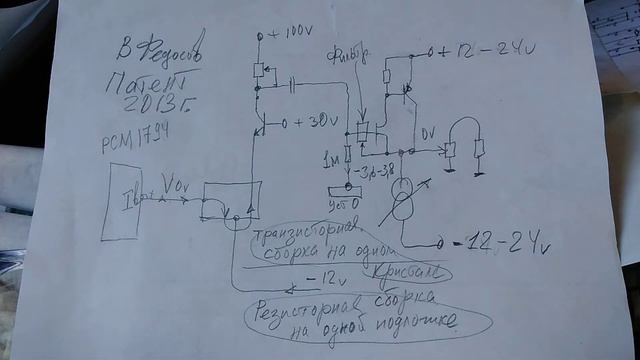 В Федосов
Патент
2013г.
PCM1794
+ 100v
Фильтр
+ 12 - 24v
+ 30v
0v
1м
-3,6-3,8
Уст 0
Iв
V0v
транзисторная
сборка на одном
кристале
-12-24v
-12v
Резисторная сборка
на одной подложке